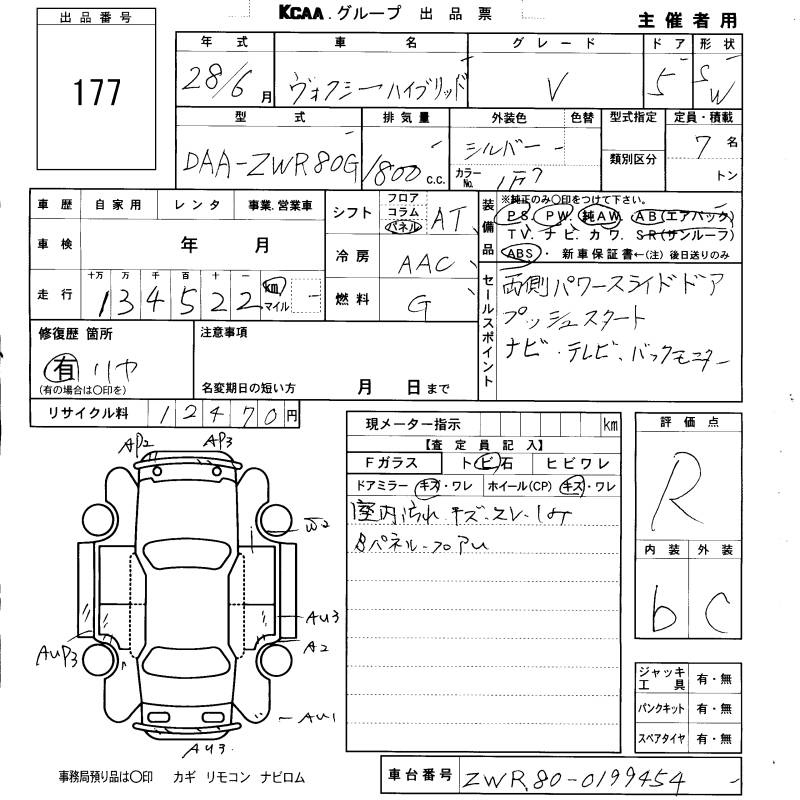 KCAA.グループ 出品票
主催者用
出品番号
177
年式 車名 グレード ドア 形状
28/6月 ヴォクシーハイブリッド V 5 SW
型式 排気量 外装色 色替 型式指定 定員・積載
DAA-ZWR80G 1800c.c. シルバー 7名
カラーNo. 1F7 類別区分 トン
車歴 自家用 レンタ 事業.営業車
車検 年 月
走行 十万 万 千 百 十 一
134522 km マイル
シフト フロア コラム パネル AT
冷房 AAC
燃料 G
装備品 ※純正のみ〇印をつけて下さい。
PS. PW. 純AW. AB(エアバック)
TV. ナビ. カワ. SR(サンルーフ)
ABS・新車保証書←(注)後日送りのみ
セールスポイント
両側パワースライドドア
プッシュスタート
ナビ・テレビ、バックモニター
修復歴 箇所
有 リヤ
(有の場合は〇印を)
注意事項
名変期日の短い方 月 日まで
リサイクル料 12470円
現メーター指示 km
【査定員記入】
Fガラス トビ石 ヒビワレ
ドアミラー キズ・ワレ ホイール(CP) キズ・ワレ
室内汚れ キズ・スレ・
Bパネル・フロアU
評価点
R
内装 外装
b C
ジャッキ工具 有・無
パンクキット 有・無
スペアタイヤ 有・無
AP2 AP3
W2
AU3
A2
AUP3
AU1
AU3
事務局預り品は〇印 カギ リモコン ナビロム
車台番号 ZWR80-0199454